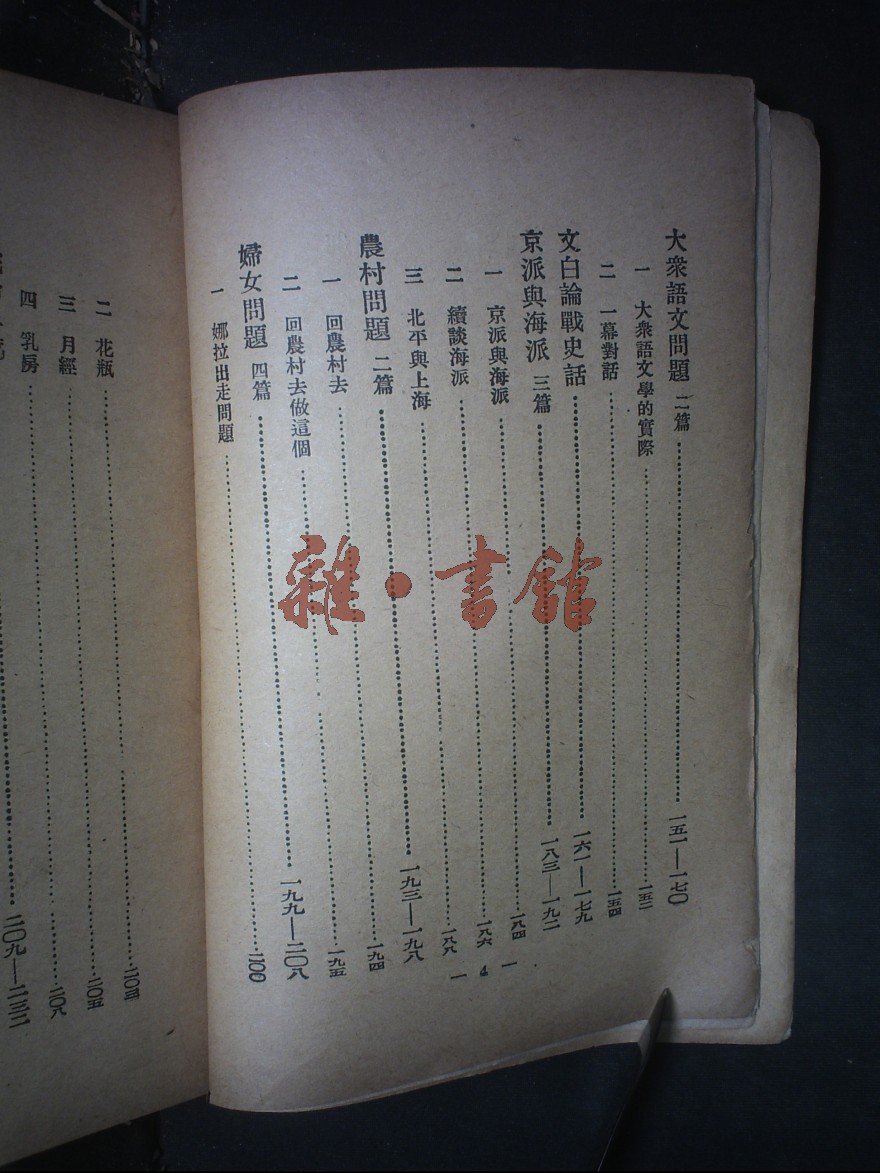 大衆語文問題 二篇 一五一—一七〇
一 大衆語文學的實際 一五二
二 一幕對話 一五四
文白論戰史話 一六一—一七九
京派與海派 三篇 一八三—一九二
一 京派與海派 一八四
二 續談海派 一八六
三 北平與上海 一八八
農村問題 二篇 一九三—一九八
一 回農村去 一九四
二 回農村去做這個 一九五
婦女問題 四篇 一九九—二〇八
一 娜拉出走問題 二〇〇
— 4 —
二 花瓶 二〇三
三 月經 二〇五
四 乳房 二〇八
二〇九—二三二
雜·書館